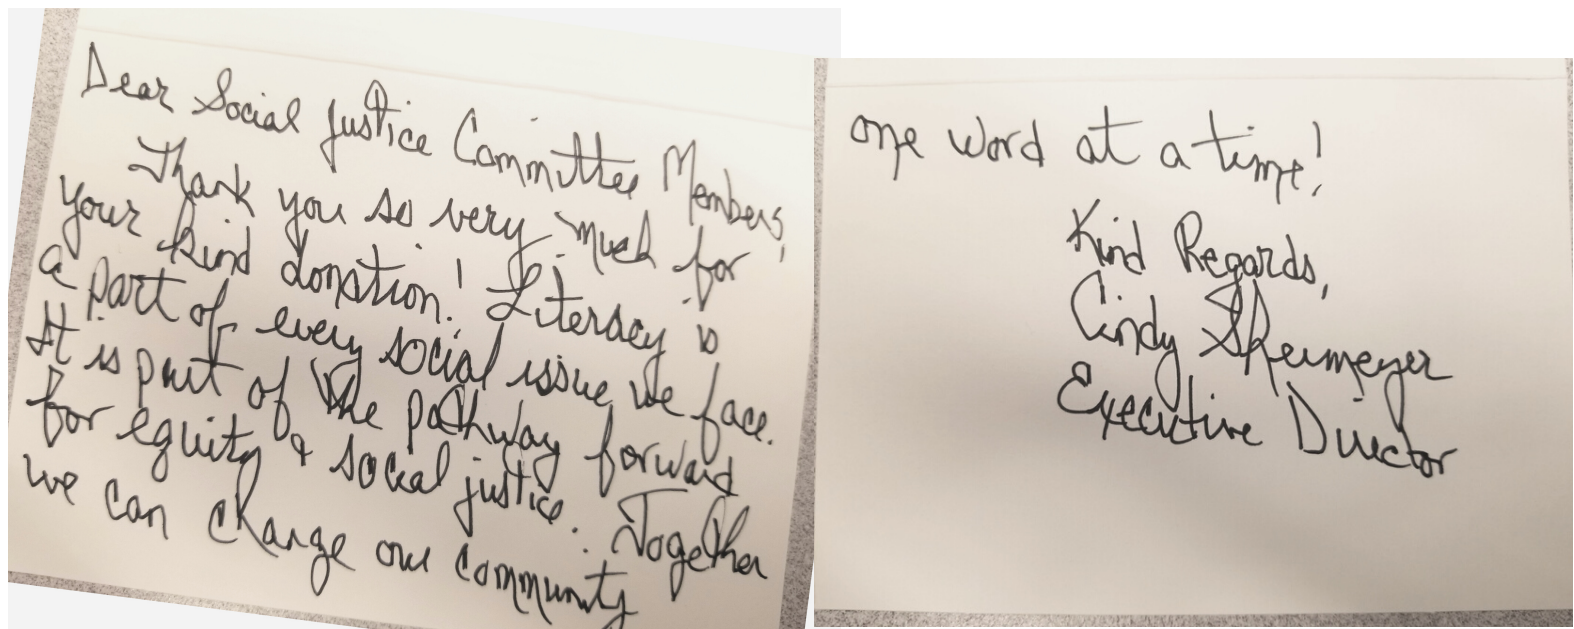 Dear Social Justice Committee Members,
Thank you so very much for
your kind donation! Literacy is
a part of every social issue we face.
It is part of the pathway forward
for equity & social justice. Together
we can change our community
one word at a time!
Kind Regards,
Cindy
Executive Director